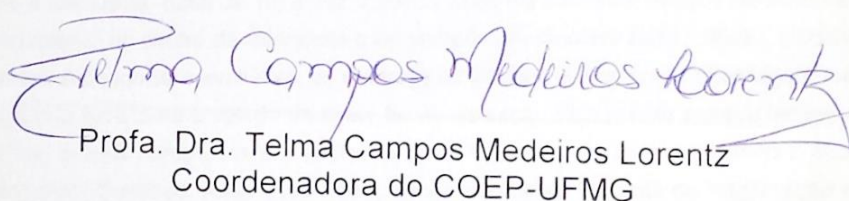 Telma Campos Medeiros Lorentz
Profa. Dra. Telma Campos Medeiros Lorentz
Coordenadora do COEP-UFMG